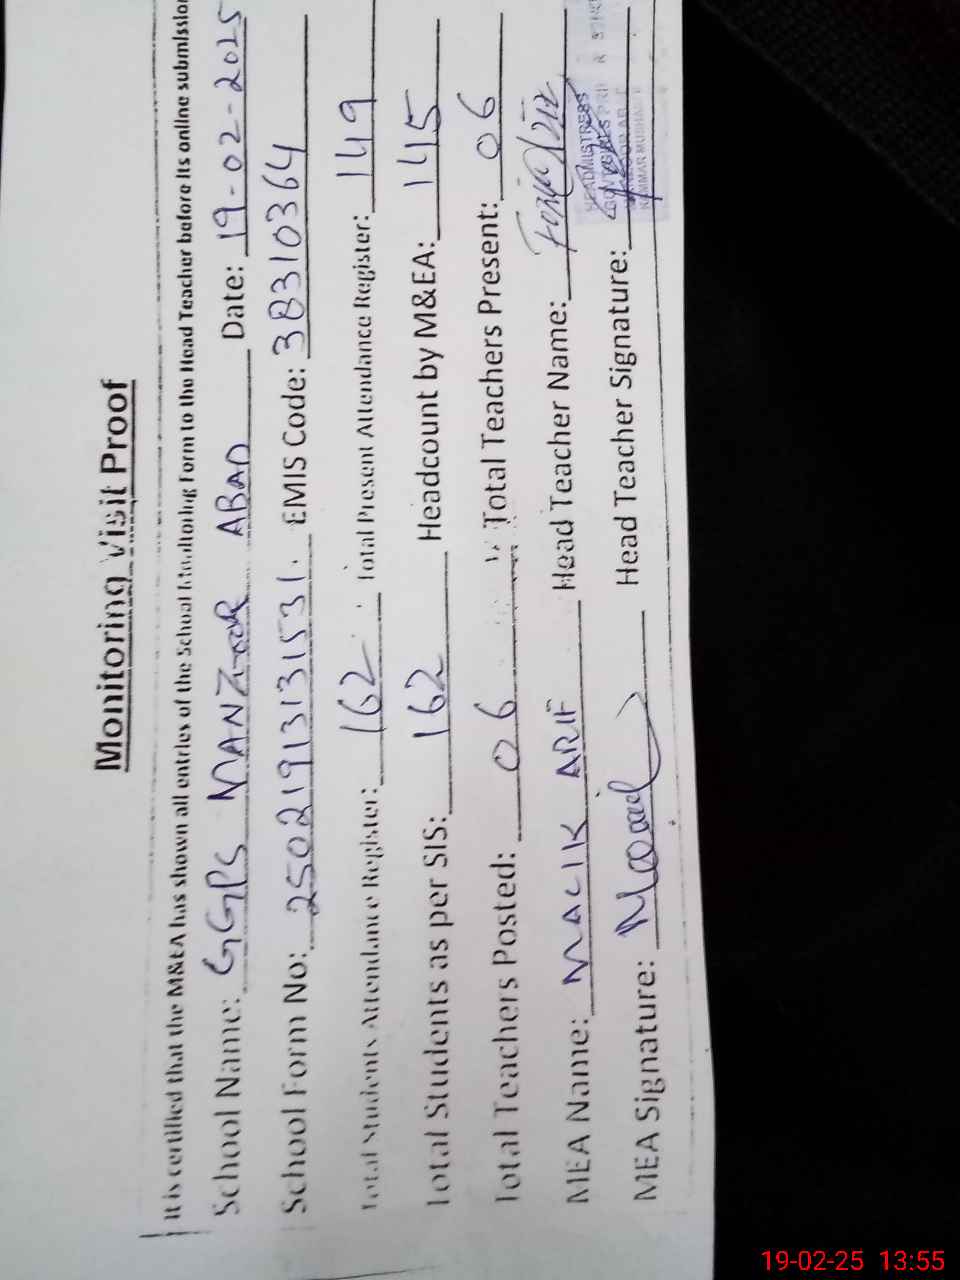 Monitoring Visit Proof
It is certified that the M&EA has shown all entries of the School Monitoring Form to the Head Teacher before its online submission
School Name: GGPS MANZOOR ABAD Date: 19-02-2025
School Form No: 25021913131531. EMIS Code: 38310364
Total Students Attendance Register: 162 Total Present Attendance Register: 149
Total Students as per SIS: 162 Headcount by M&EA: 145
Total Teachers Posted: 06 Total Teachers Present: 06
MEA Name: MALIK ARIF Head Teacher Name: Fozia
MEA Signature: Head Teacher Signature:
HEADMISTRESS
19-02-25 13:55